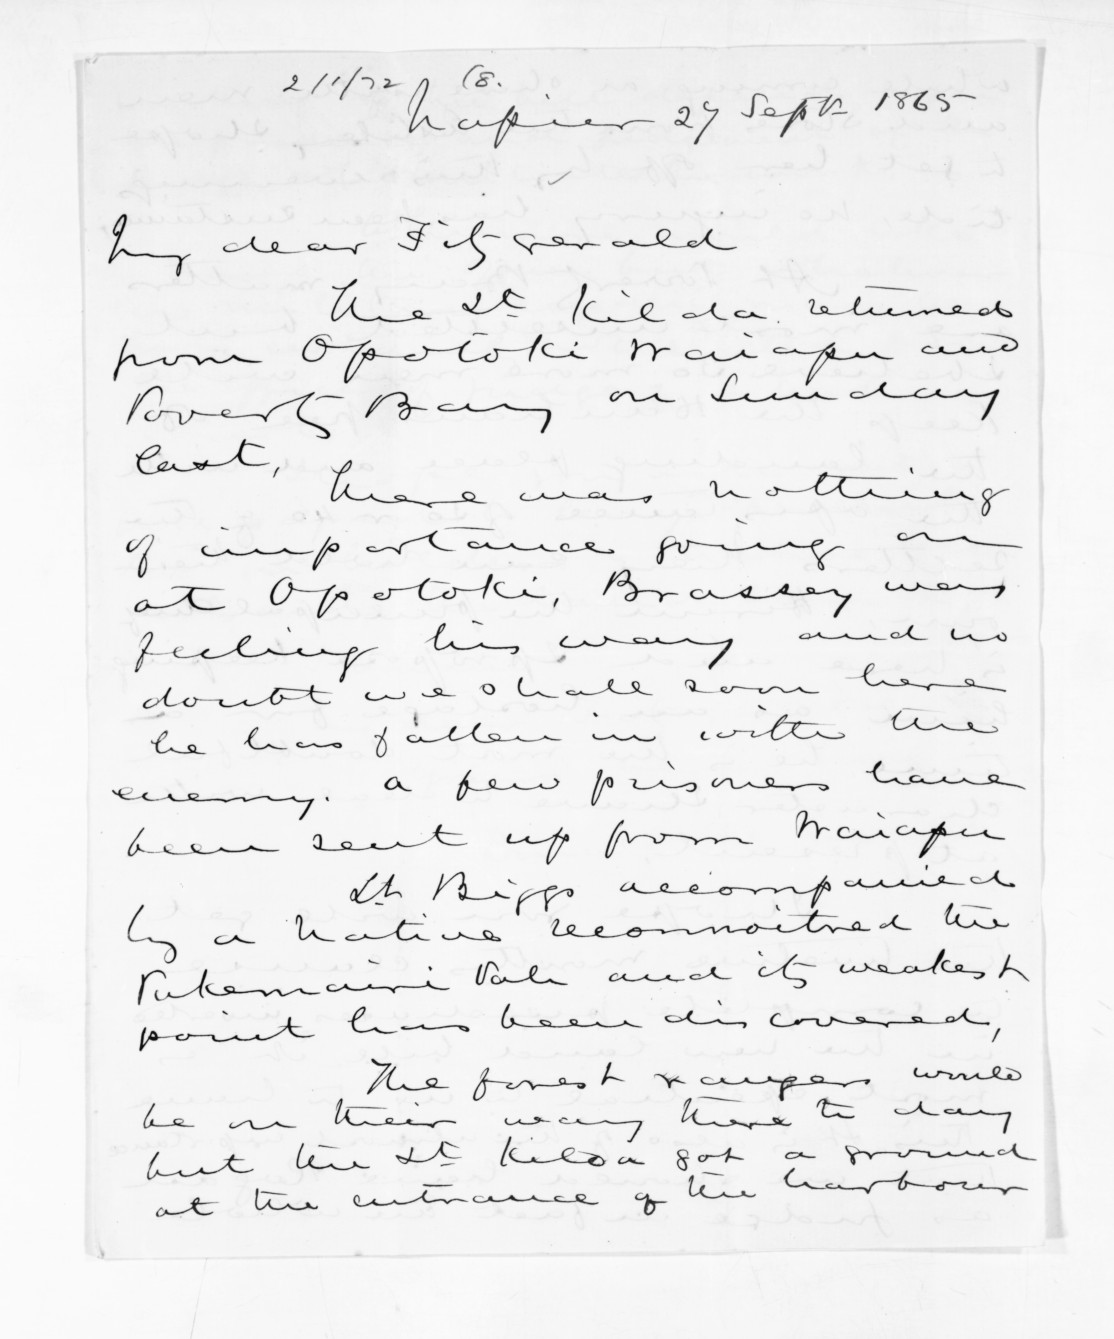 2/1/72 (8.
Napier 27 Sept 1865
My dear Fitzgerald
The St Kilda returned
from Opotoki Waiapu and
Poverty Bay on Sunday
last,
There was nothing
of importance going on
at Opotoki, Brassey was
feeling his way and no
doubt we shall soon here
he has fallen in with the
enemy. a few prisoners have
been sent up from Waiapu
Lt Biggs accompanied
by a Native reconnoitred the
Pukemairi Pah and its weakest
point has been discovered,
The forest rangers would
be on their way there to day
but the St Kilda got a ground
at the entrance of the harbour